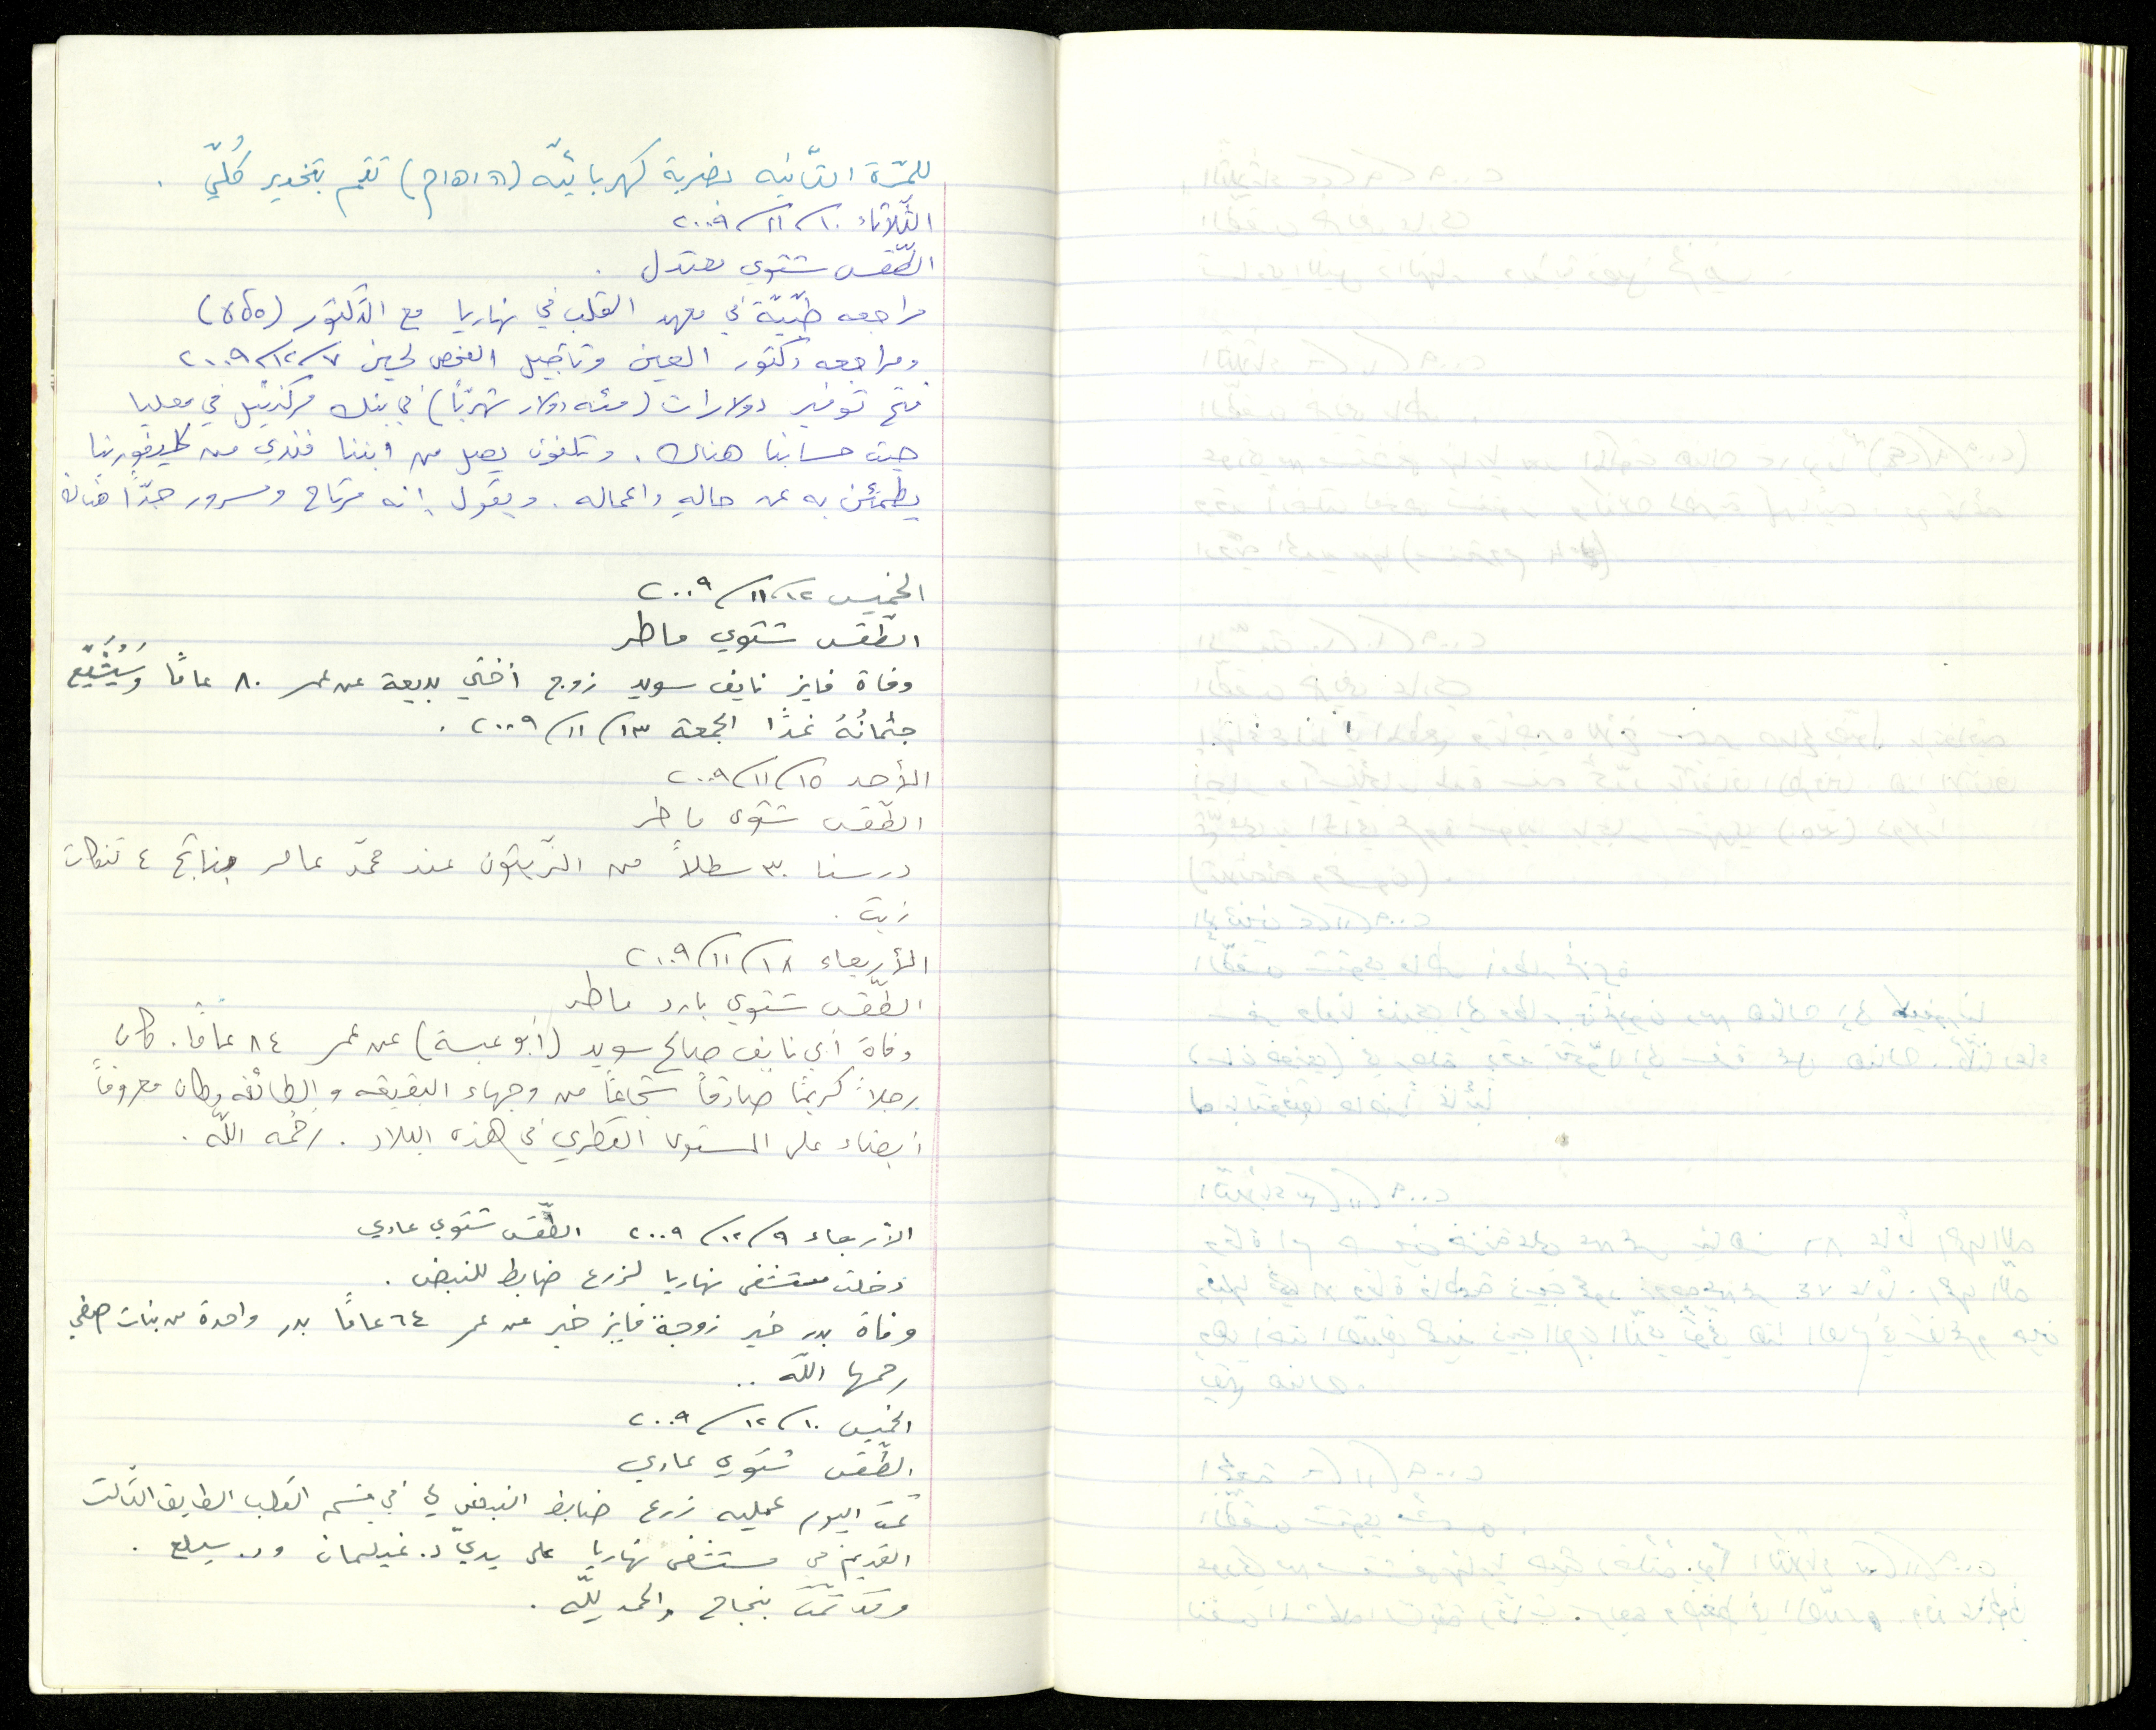 للمرّة الثّانية بضربة كهربائيّه (היפוך) تتم بتخدير كُليّ .
الثّلاثاء ١٠/١١/٢٠٠٩
الطّقس شتوي معتدل .
مراجعه طبّيّة في معهد القلب في نهاريا مع الدّكتور
ومراجعه دكتور العين وتاجيل الفحص لحين ٧/١٢/٢٠٠٩
فتح توفير دولارات (مئه دولار شهريّاً) في بنك مركنتيل في معليا
حيث حسابنا هناك . وتلفون يصل من ابننا فندي من كاليفورنيا
يطمئن به عن حاله واعماله . ويقول إنه مرتاح ومسرور جدّاً هناك
الخميس ١٢/١١/٢٠٠٩
الطّقس شتوي ماطر
وفاة فايز نايف سويد زوج أختي بديعة عن عمر ٨٠ عامًا وَسَيُشَيَّع
جثمانُهُ غدًا الجمعة ١٣/١١/٢٠٠٩ .
الأحد ١٥/١١/٢٠٠٩
الطّقس شتوي ماطر
درسنا ٣٠ سطلاً من الزّيتون عند محمّد عامر بناتج ٤ تنكات
زيت .
الأربعاء ١٨/١١/٢٠٠٩
الطّقس شتوي بارد ماطر
وفاة أبي نايف صالح سويد (أبو عبسة) عن عمر ٨٤ عامًا . كان
رجلاً كريمًا صادقاً شجاعًا من وجهاء البقيعه والطائفه وكان معروفاً
أيضاء على المستوى القطري في هذه البلاد . رحمه اللّه .
الأربعاء ٩/١٢/٢٠٠٩ الطّقس شتوي عادي
دخلت مستشفى نهاريا لزرع ضابط للنبض .
وفاة بدر خير زوجة فايز خير عن عمر ٦٤ عامًا بدر واحدة من بنات صفي
رحمها اللّه ..
الخميس ١٠/١٢/٢٠٠٩
الطّقس شتوي عادي
تمت اليوم عمليه زرع ضابط النبض لي في قسم القلب الطابق الثّالث
القديم في مستشفى نهاريا على يديّ د. غيلمان ود. سيلع .
وقد تمّت بنجاح والحمد للّه .